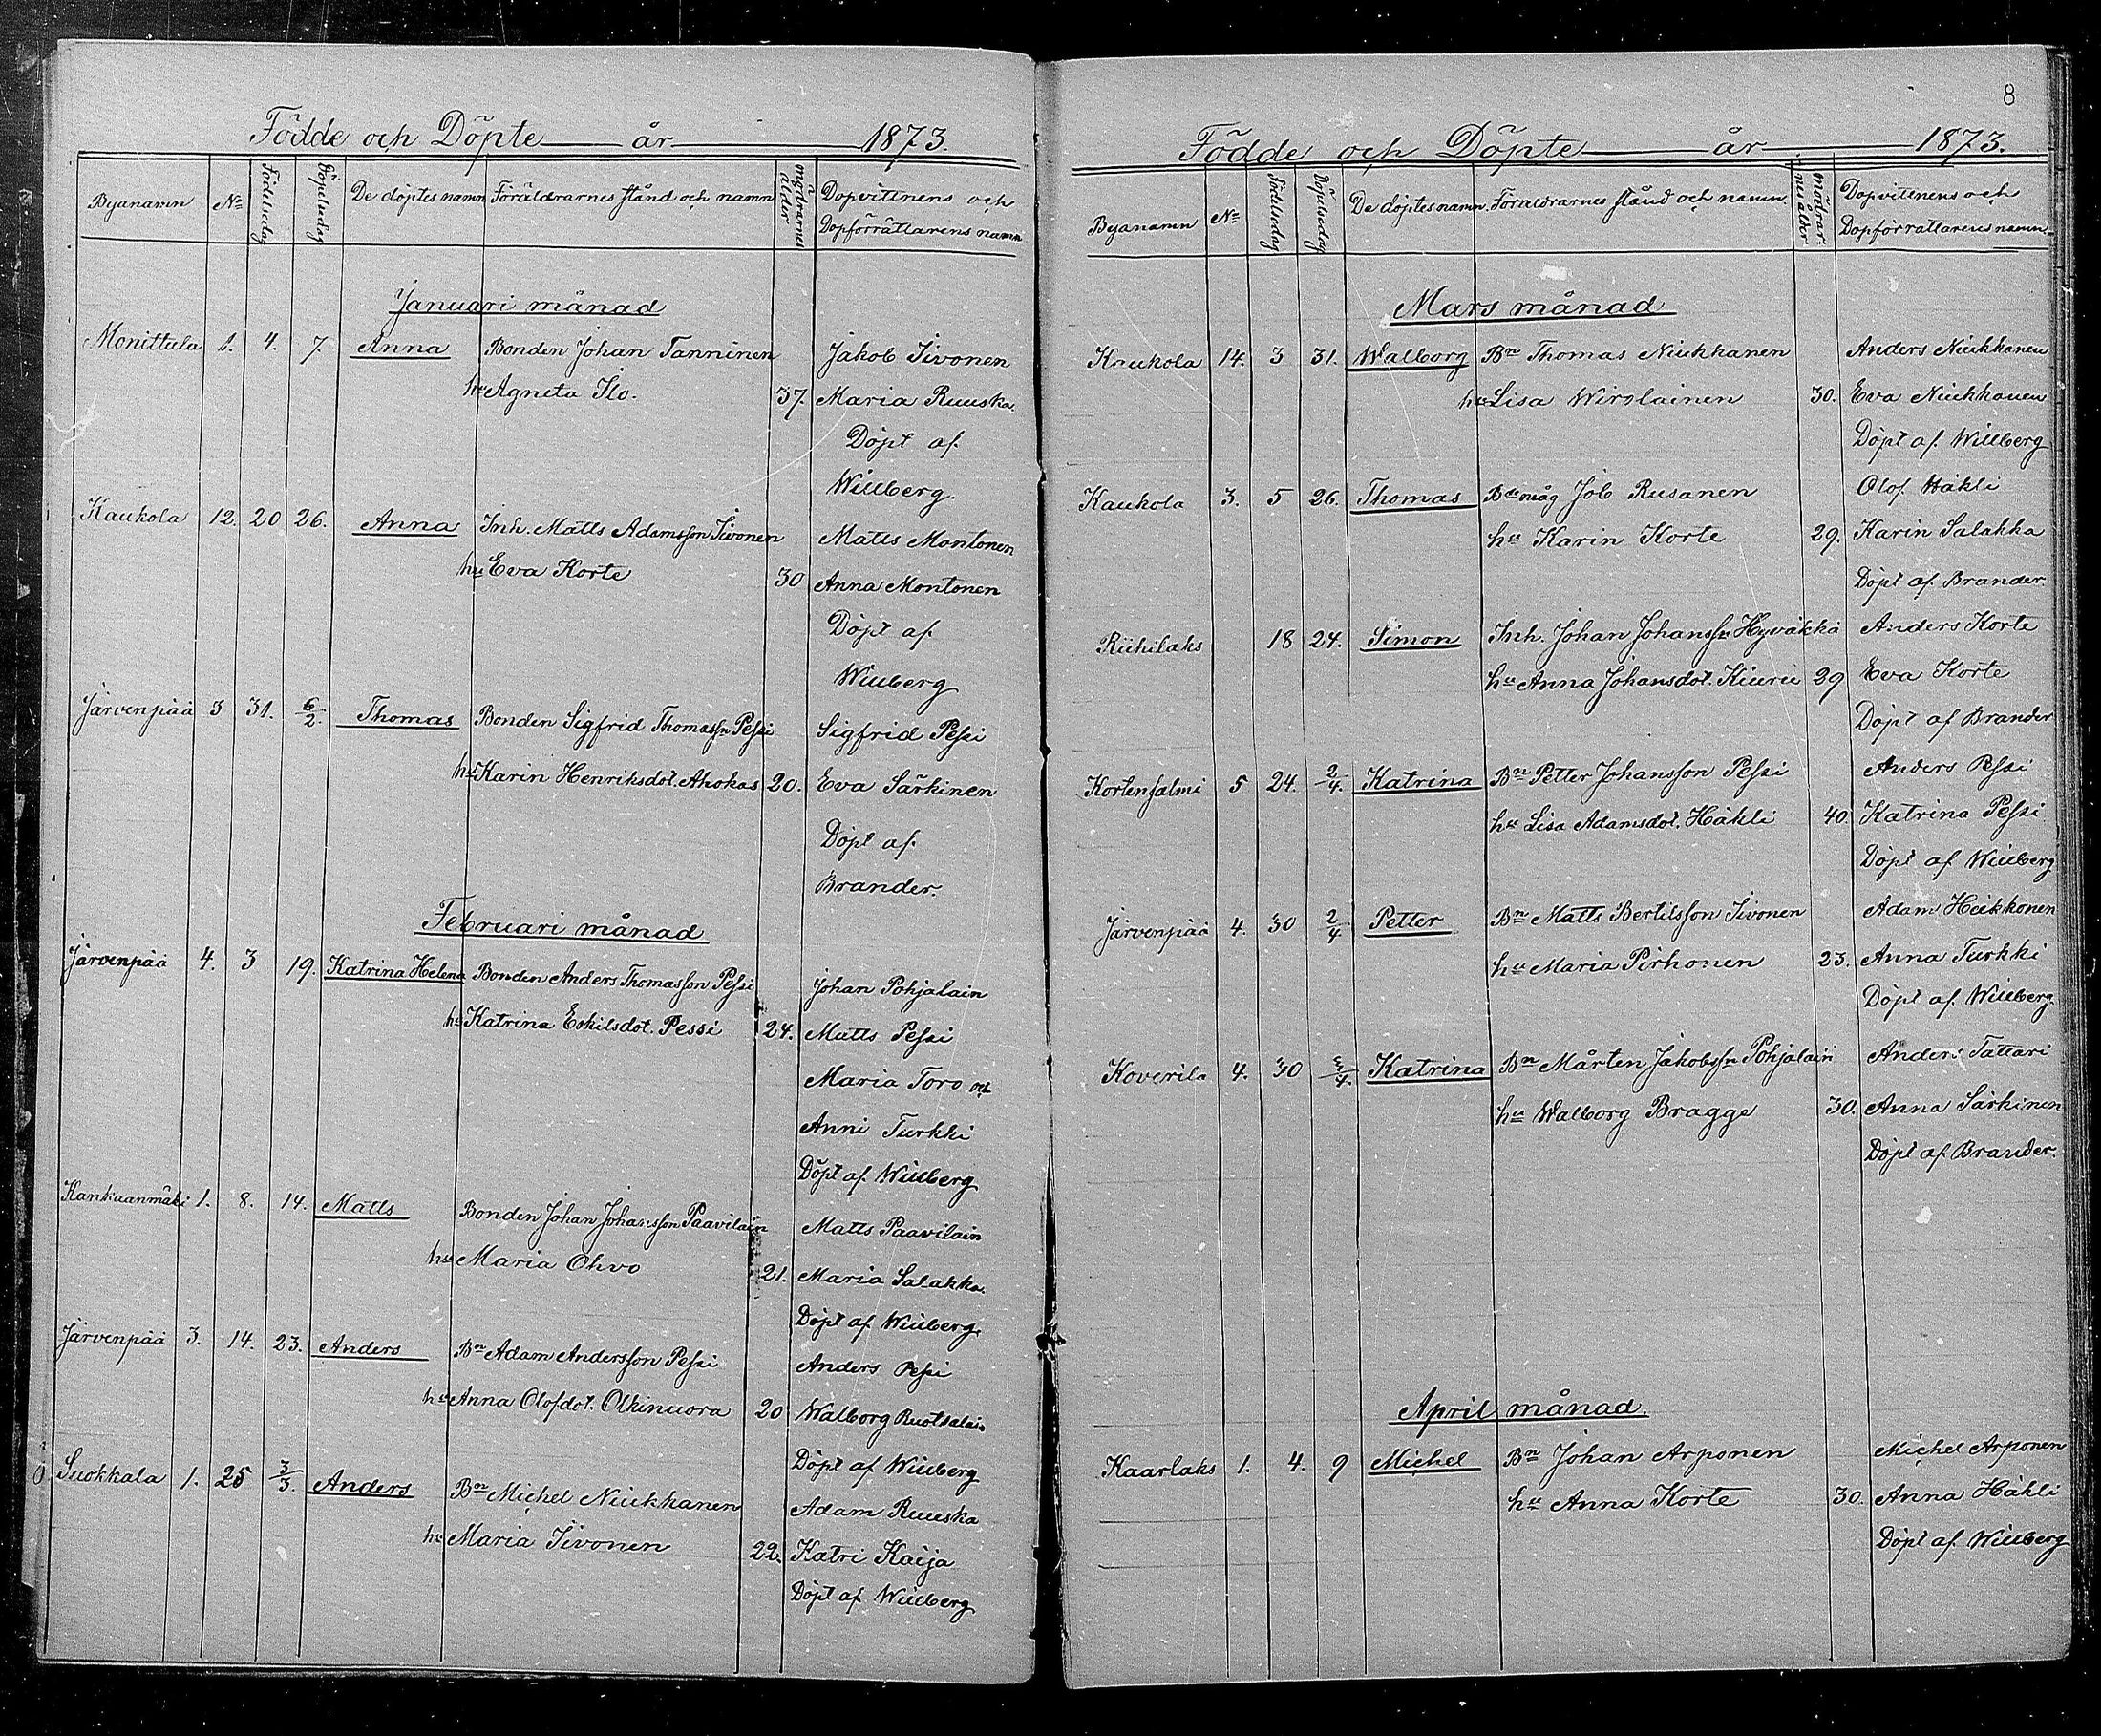 8
Födde och Döpte år 1873.
Byanamn Nº Födelsedag Döpelsedag De döptes namn Föräldrarnes stånd och namn mödrarnes ålder Dopvittnens och
Dopförrättarens namn
Januari månad
Monittula 1. 4. 7. Anna Bonden Johan Tanninen Jakob Iivonen
hu Agneta Ilo. 37. Maria Ruuska
Döpt af
Willberg.
Kaukola 12. 20 26. Anna Inh. Matts Adamsson Iivonen Matts Montonen
hu Eva Korte 30 Anna Montonen
Döpt af
Willberg
Järvenpää 3 31. 6/2. Thomas Bonden Sigfrid Thomassn Pessi Sigfrid Pessi
hu Karin Henriksdot. Ahokas 20. Eva Särkinen
Döpt af
Brander.
Februari månad
Järvenpää 4. 3 19. Katrina Helena Bonden Anders Thomasson Pessi Johan Pohjalain
hu Katrina Eskilsdot. Pessi 24. Matts Pessi
Maria Toro och
Anni Turkki
Döpt af Willberg
Kankaanmäki 1. 8. 14. Matts Bonden Johan Johansson Paavilain Matts Paavilain
hu Maria Ohvo 21. Maria Salakka
Döpt af Willberg
Järvenpää 3. 14. 23. Anders Bn Adam Andersson Pessi Anders Pessi
hu Anna Olofdot. Olkinuora 20 Walborg Ruotsalain
Döpt af Willberg
Suokkala 1. 25 3/3. Anders Bn Michel Niukkanen Adam Ruuska
hu Maria Iivonen 22. Katri Kaija
Döpt af Willberg
Födde och Döpte år 1873.
Byanamn Nº Födelsedag Döpelsedag De döptes namn. Föräldrarnes stånd och namn. Mödrarnes ålder Dopvittnens och
Dopförrättarens namn.
Mars månad
Kaukola 14. 3 31. Walborg Bn Thomas Niukkanen Anders Niukkanen
hu Lisa Wirolainen 30. Eva Niukkanen
Döpt af Willberg
Kaukola 3. 5 26. Thomas Bdemåg Job Rusanen Olof Häkli
hu Karin Korte 29. Karin Salakka
Döpt af Brander.
Riihilaks 18 24. Simon Inh. Johan Johanssn Hyväkkä Anders Korte
hu Anna Johansdot. Kiuru 29 Eva Korte
Döpt af Brander
Kortensalmi 5 24. 2/4. Katrina Bn Petter Johansson Pessi Anders Pessi
hu Lisa Adamsdot. Häkli 40. Katrina Pessi
Döpt af Willberg
Järvenpää 4. 30 2/4 Petter Bn Matts Bertilsson Iivonen Adam Heikkonen
hu Maria Pirhonen 23. Anna Turkki
Döpt af Willberg
Koverila 4. 30 3/4. Katrina Bn Mårten Jakobssn Pohjalain Anders Tattari
hu Walborg Bragge 30. Anna Särkinen
Döpt af Brander.
April månad
Kaarlaks 1. 4. 9 Michel Bn Johan Arponen Michel Arponen
hu Anna Korte 30. Anna Häkli
Döpt af Willberg